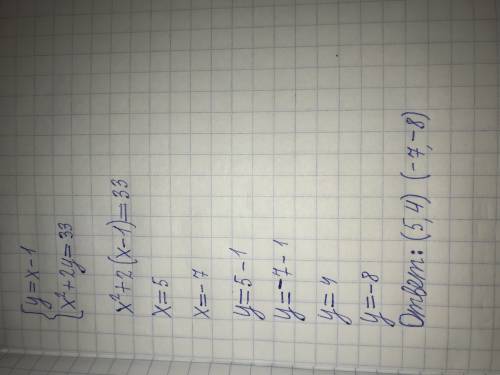 {y=x-1
{x²+2y=33
x²+2(x-1)=33
x=5
x=-7
y=5-1
y=-7-1
y=4
y=-8
Ответ: (5,4) (-7,-8)